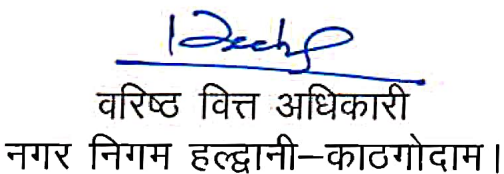 वरिष्ठ वित्त अधिकारी
नगर निगम हल्द्वानी–काठगोदाम।